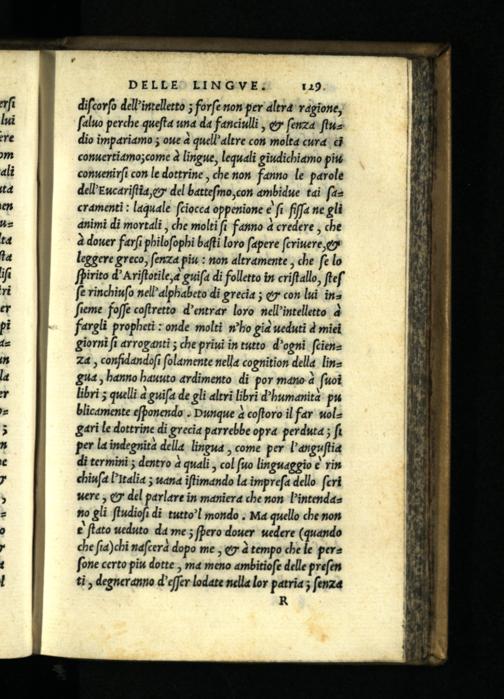 DELLE LINGVE. 129.
discorso dell'intelletto; forse non per altra ragione,
saluo perche questa una da fanciulli, & senza stu=
dio impariamo; oue à quell'altre con molta cura ci
conuertiamo; come à lingue, lequali giudichiamo piu
conuenirsi con le dottrine, che non fanno le parole
dell'Eucaristia, & del battesmo, con ambidue tai sa=
cramenti: laquale sciocca oppenione è si fissa ne gli
animi di mortali, che molti si fanno à credere, che
à douer farsi philosophi basti loro sapere scriuere, &
leggere greco, senza piu: non altramente, che se lo
spirito d'Aristotile, à guisa di folletto in cristallo, stes
se rinchiuso nell'alphabeto di grecia; & con lui in=
sieme fosse costretto d'entrar loro nell'intelletto à
fargli propheti: onde molti n'ho già ueduti à miei
giorni si arroganti; che priui in tutto d'ogni scien=
za, confidandosi solamente nella cognition della lin=
gua, hanno hauuto ardimento di por mano à suoi
libri; quelli à guisa de gli altri libri d'humanità pu
blicamente esponendo. Dunque à costoro il far uol=
gari le dottrine di grecia parrebbe opra perduta; si
per la indegnità della lingua, come per l'angustia
di termini; dentro à quali, col suo linguaggio è rin
chiusa l'Italia; uana istimando la impresa dello scri
uere, & del parlare in maniera che non l'intenda=
no gli studiosi di tutto'l mondo. Ma quello che non
è stato ueduto da me; spero douer uedere (quando
che sia) chi nascerà dopo me, & à tempo che le per=
sone certo piu dotte, ma meno ambitiose delle presen
ti, degneranno d'esser lodate nella lor patria; senza
R